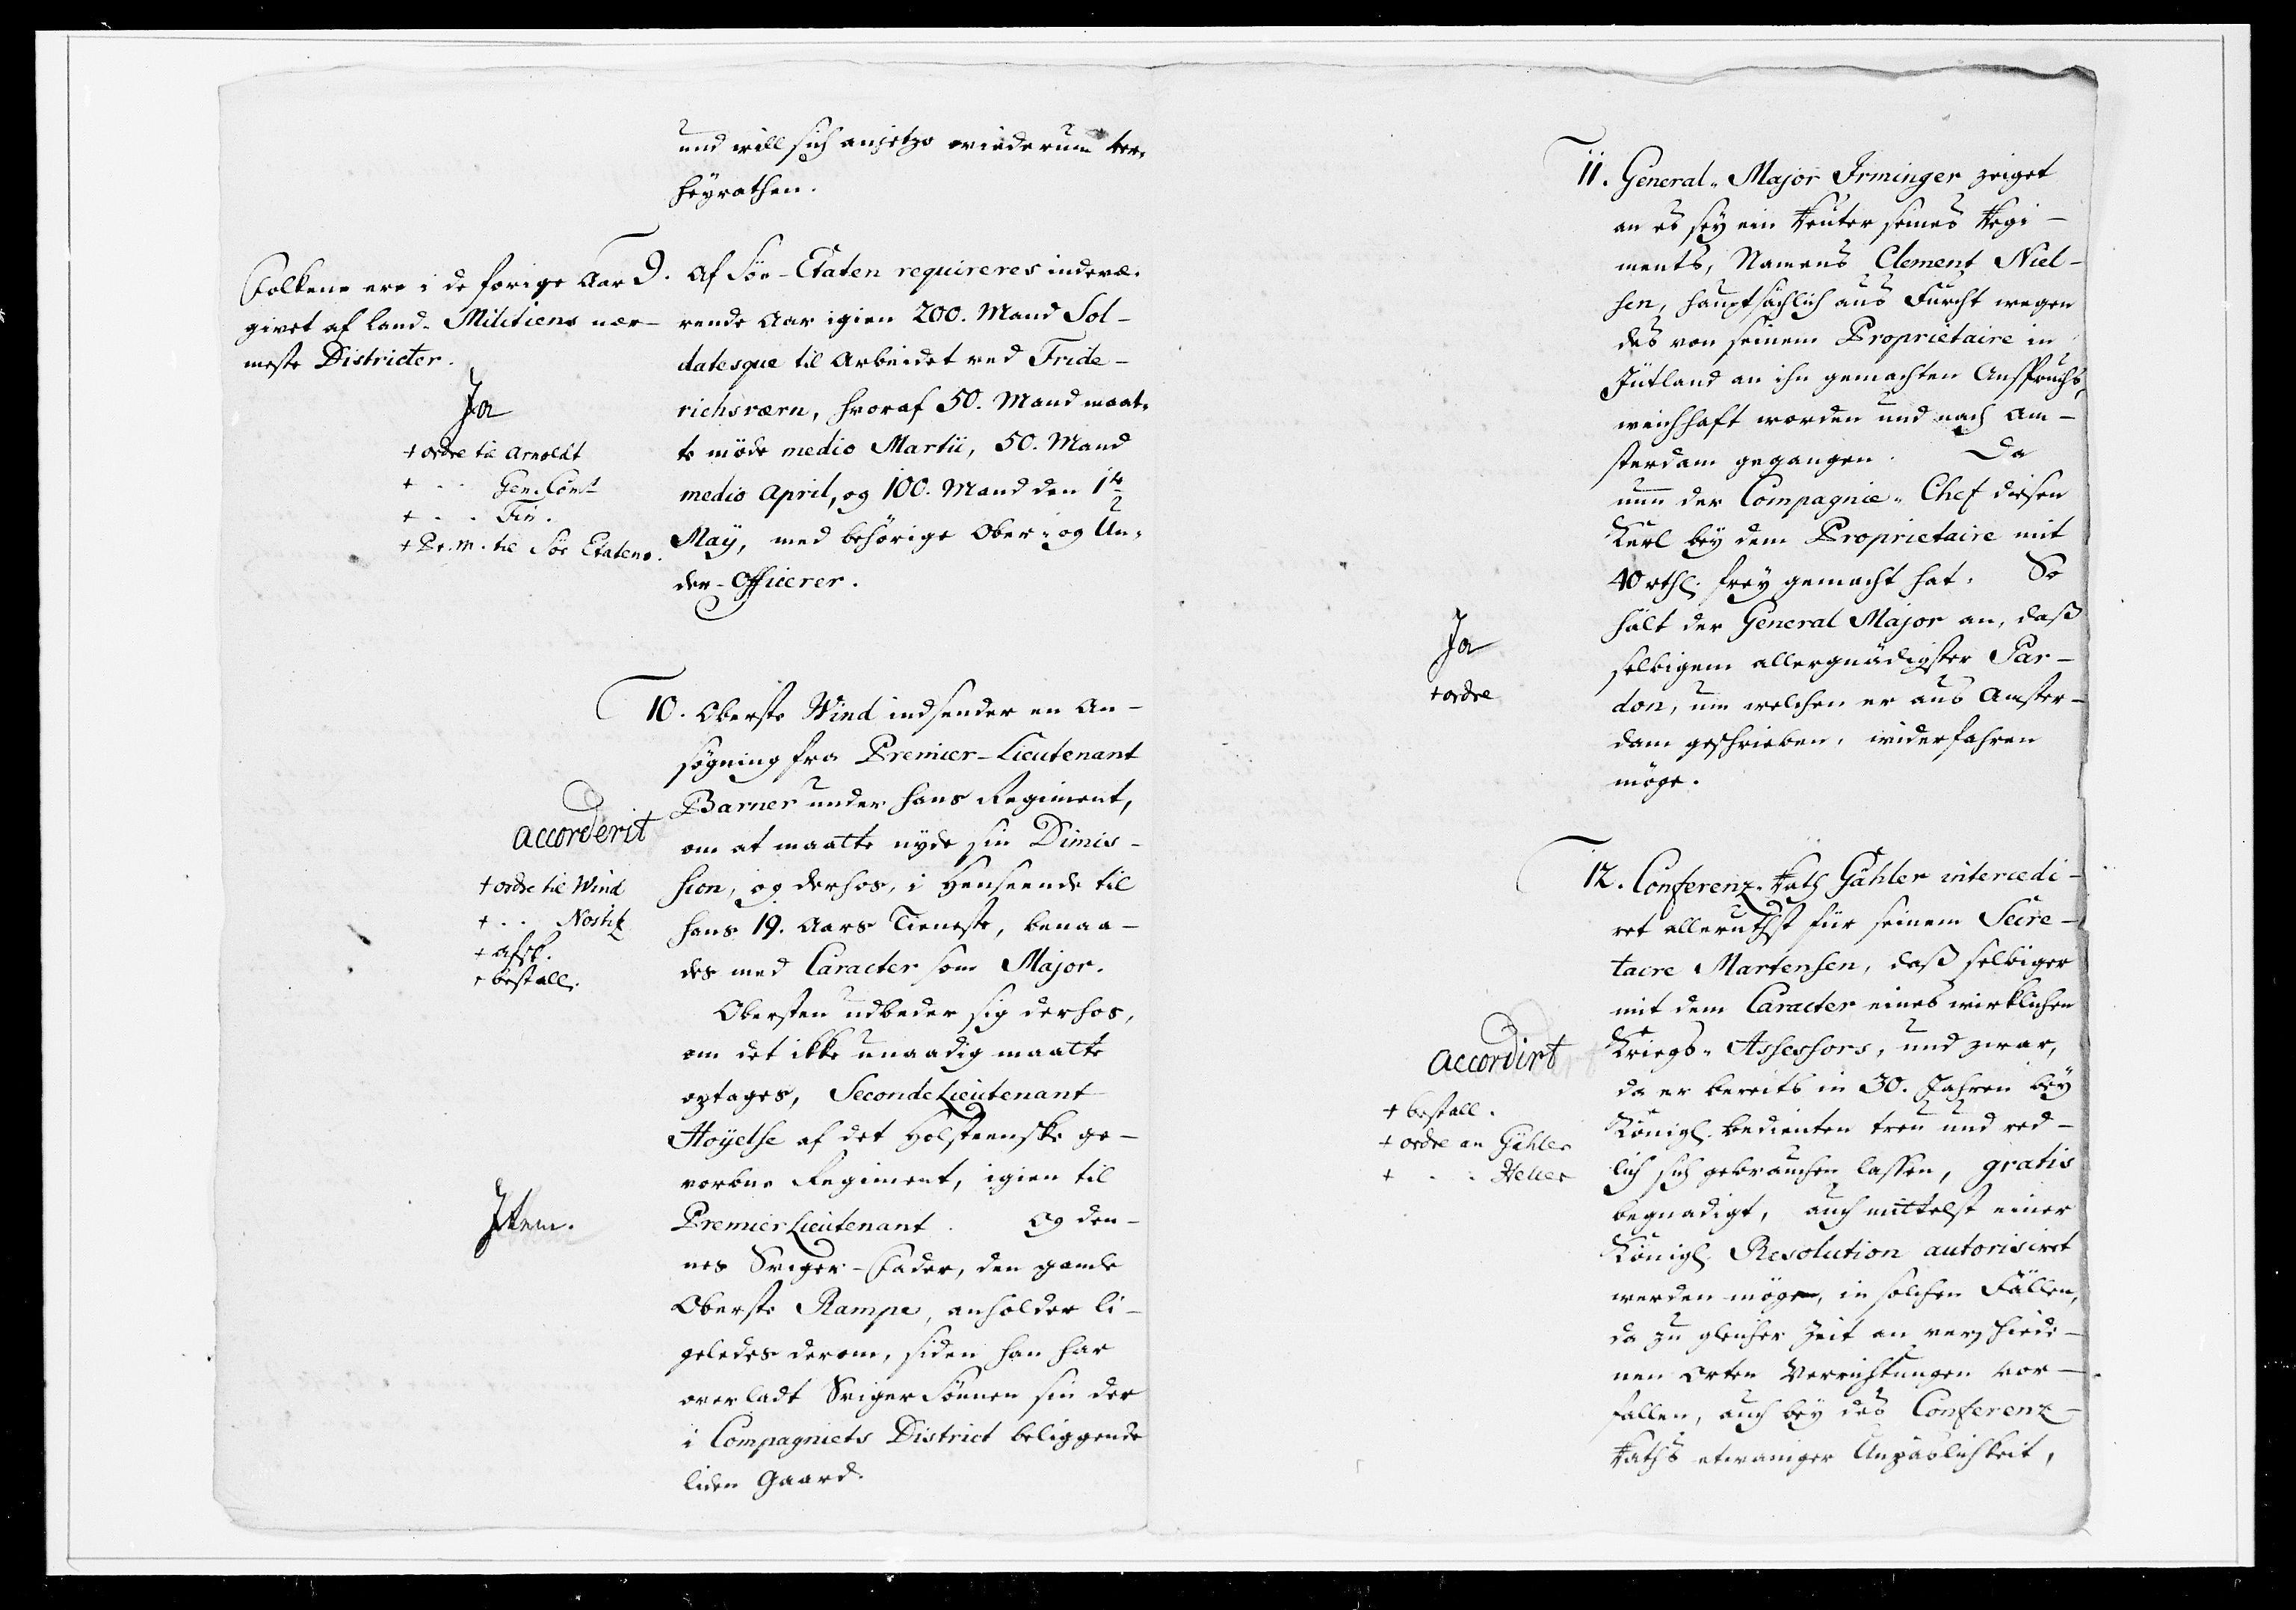 und will sich anjetzo wiederum ver-
heyrathen.
Folkene ere i de forige Aar
givet af Land-Militiens nær-
meste Districter.
Ja
+ ordre til Arnoldt
+ - - Gen. Com.
+ - - Fin.
+ Pr. M. til Söe Etatens.
9. Af Söe-Etaten requireres indevæ-
rende Aar igien 200. Mand Sol-
datesque til Arbeidet ved Fride-
richsværn, hvoraf 50. Mand maat-
te möde medio Martii, 50. Mand
medio April, og 100. Mand den 1te
Maÿ, med behörige Ober- og Un-
der-Officerer.
10. Oberste Wind indsender en An-
sögning fra Premier-Lieutenant
Barner under hans Regiment,
om at maatte nyde sin Dimis-
sion, og derhos, i Henseende til
hans 19. Aars Tieneste, benaa-
des med Caracter som Major.
Obersten udbeder sig derhos,
om det ikke unaadig maatte
optages, SecondeLieutenant
Höyelse af det Holsteenske ge-
vorbne Regiment, igien til
PremierLieutenant. Og den-
nes Sviger-Fader, den gamle
Oberste Rampe, anholder li-
geledes derom, siden han har
overladt SvigerSönnen sin der
i Compagniets District beliggende
liden Gaard.
accorderit
+ ordre til Wind
+ - - Nostitz
+ afsk.
+ bestall.
Item.
11. General-Major Irminger zeiget
an es sey ein Reuter seines Regi-
ments, Namens Clement Niel-
sen, hauptsächlich aus Furcht wegen
des von seinem Proprietaire in
Jütland an ihn gemachten Anspruchs,
weichhaft worden und nach Am-
sterdam gegangen. Da
nun der Compagnie-Chef diesen
Kerl bey dem Proprietaire mit
40 rthl. frey gemacht hat. So
hält der General Major an, daß
selbigem allergnädigster Par-
don, um welchen er aus Amster-
dam geschrieben, widerfahren
möge.
Ja
+ ordre
12. Conferenz-Rath Gähler intercedi-
ret allerunthst für seinem Secre-
taire Martensen, daß selbiger
mit dem Caracter eines wirklichen
Kriegs-Assessors, und zwar,
da er bereits in 30. Jahren bey
Königl. bedienten treu und red-
lich sich gebrauchen lassen, gratis
begnadigt, auch mittelst einer
Königl. Resolution autorisiret
werden möge, in solchen Fällen,
da zu gleicher Zeit an verschiede-
nen Orten Verrichtungen vor-
fallen, auch bey des Conferenz-
Raths etwaniger Unpäslichkeit,
accordirt
+ bestall.
+ ordre an Gähler
+ - -